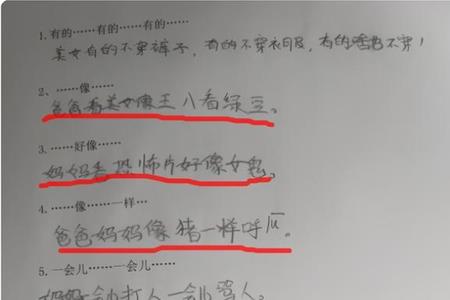 1. 有的……有的……有的……
美女有的不穿裤子,有的不穿衣服,有的啥都不穿!
2、……像……
爸爸看美女像王八看绿豆。
3. ……好像……
妈妈看恐怖片好像女鬼。
4. ……像……一样…
爸爸妈妈像猪一样呼瓜。
5. 一会儿……一会儿……
妈妈一会儿打人一会儿骂人。